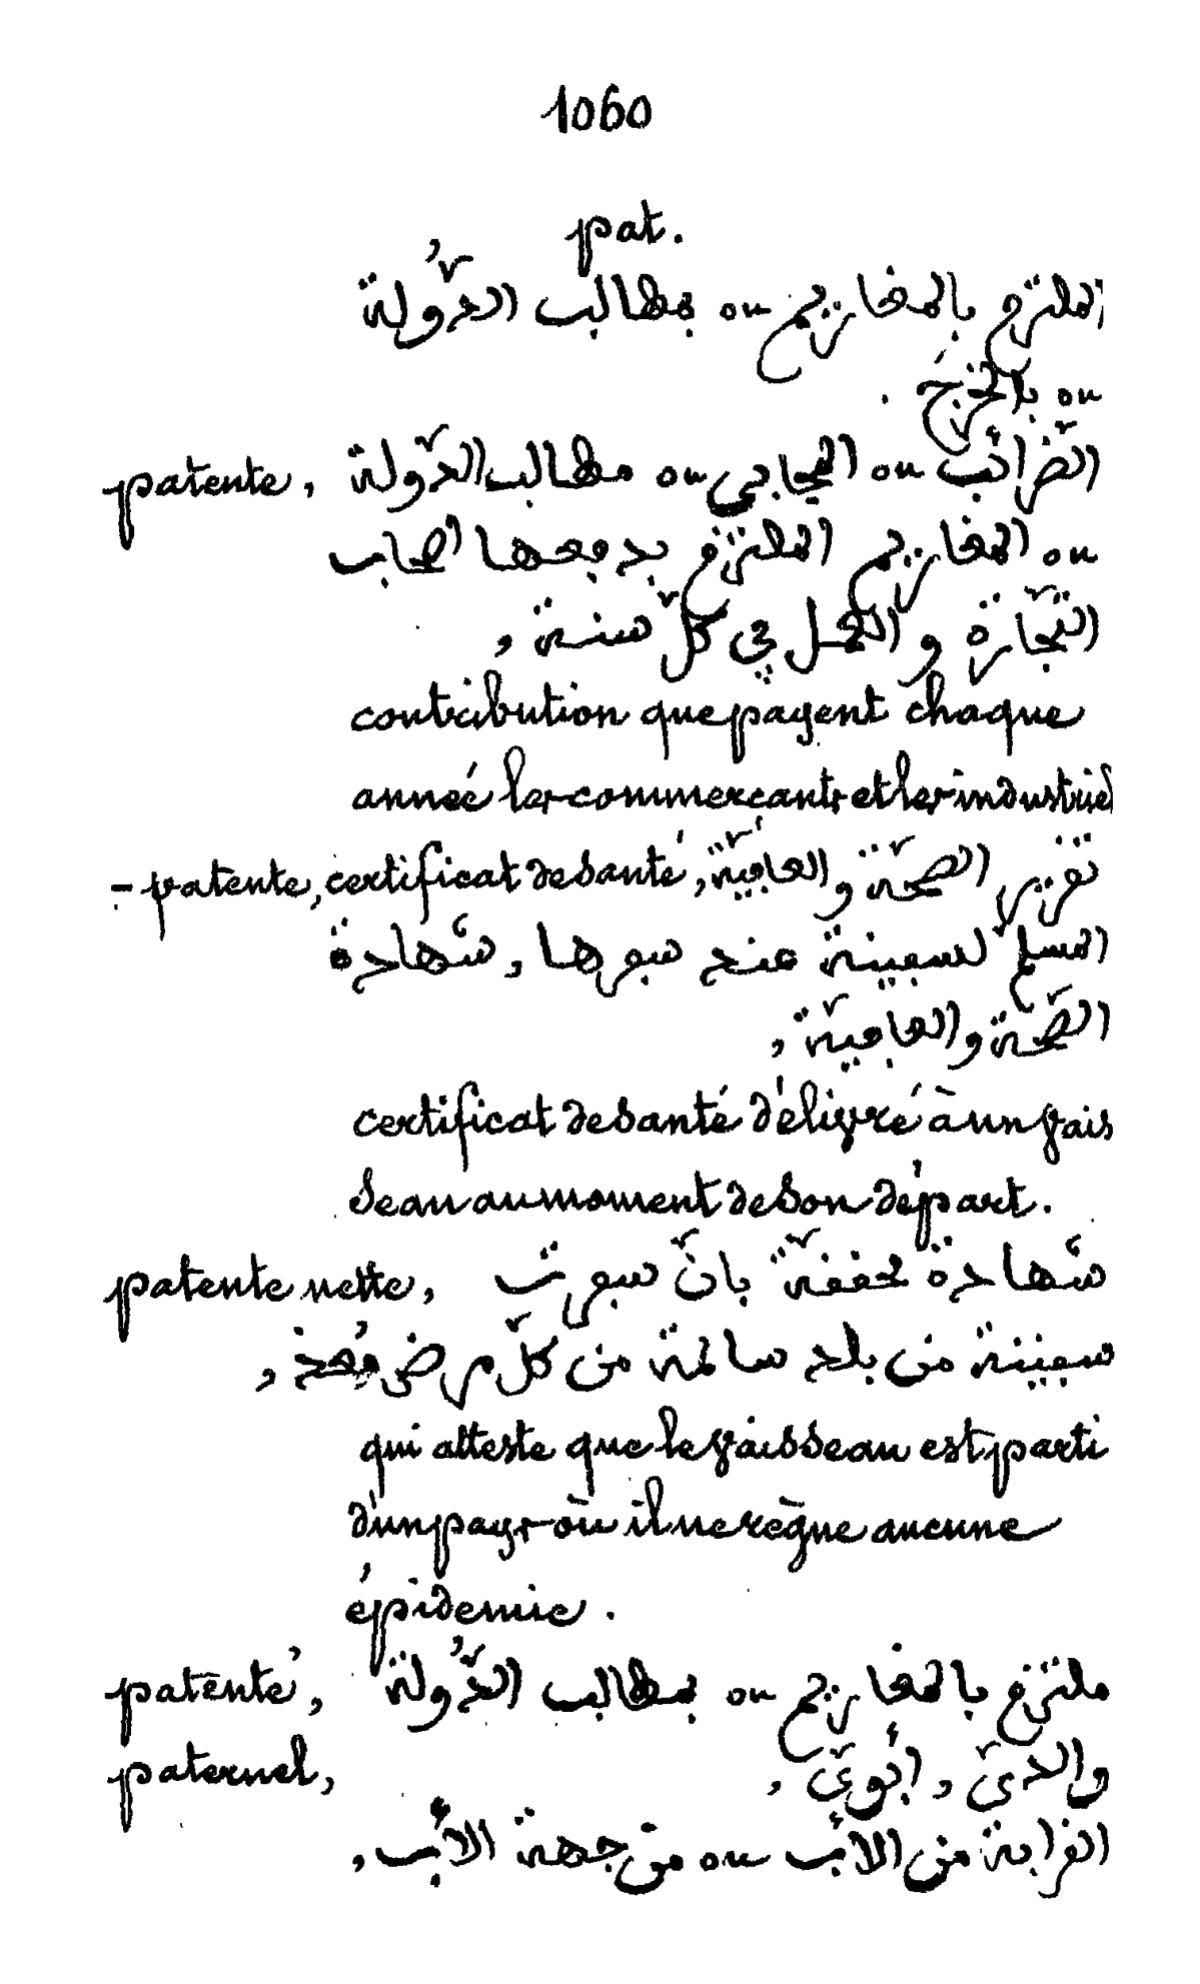 1060
pat.
الملتزم بالمغاريم ou بمطالب الدَّوْلة
ou بالخرج .
patente, الضّرائب ou المجابى ou مطالب الدّولة
ou المغاريم الملتزم بدفعها اصحاب
التّجارة و العمل في كلّ سنة ,
contribution que payent chaque
année les commerçants et les industriel
- patente, certificat de santé, تقرير الصحّة و العافيّة
المسلم لسفينة عند سفرها , شهادة
الصّحّة والعافيّة ,
certificat de santé délivré à un vais
seau au moment de son départ.
patente nette, شهادة محققة بانّ سفرت
سفينة من بلد سالمة من كلّ مرض مُعدٍ ,
qui atteste que le vaisseau est parti
d'un pays où il ne règne aucune
épidemie .
patenté, ملتزم بالمغاريم ou بمطالب الدَّولة
paternel, والدىّ , أبوىّ ,
القرابة من الأب ou من جهة الأب ,